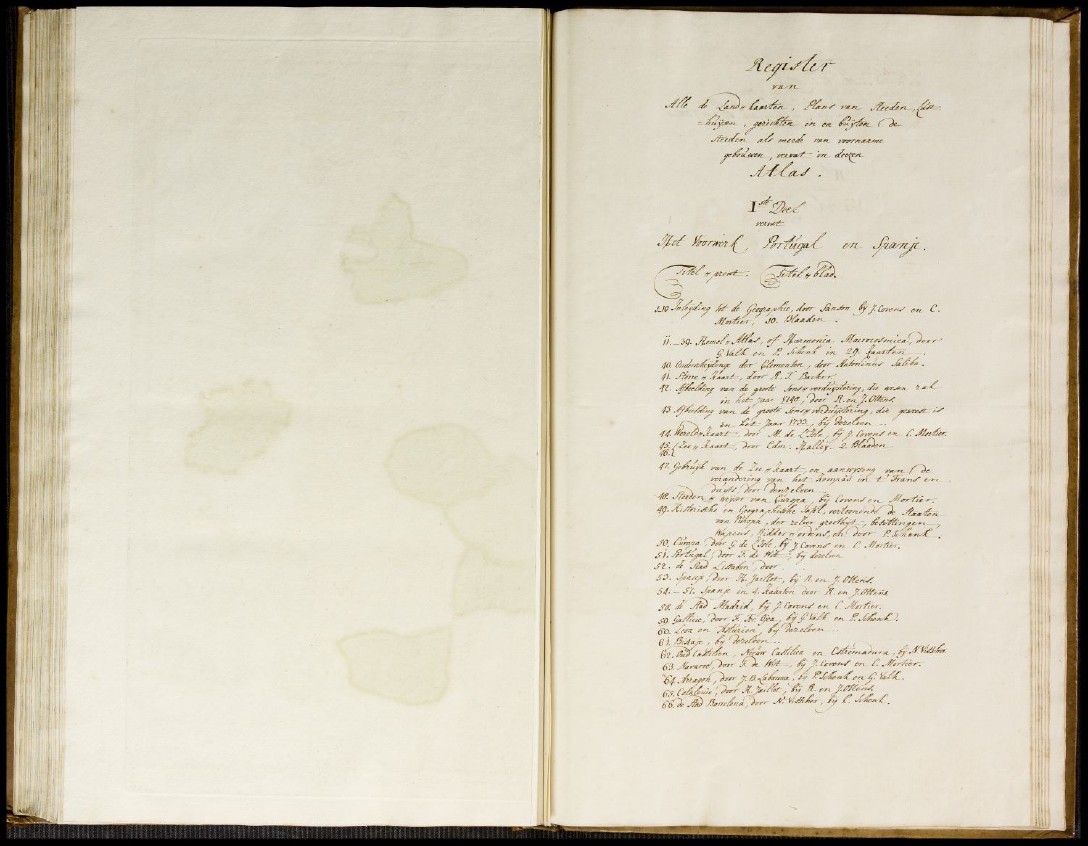 Register
van
Alle de Land-kaarten, Plans van Steeden, Lust-
-huijzen, gezichten in en buijten de
Steeden als meede van voornaame
gebouwen, vervat in deezen
Atlas.
Iste Deel
vervat
Het Voorwerk, Portugal en Spanje.
Titel-prent. Titel-blad.
1.-10 Inleyding tot de Geographie, door Sanson, by J. Covens en C.
Mortier, 10. Blaaden.
11.-39. Hemel-Atlas, of Harmonia Macrocosmica, door
G. Valk en P. Schenk in 29. kaarten
40. der Elementen, door Antoninus Saliba.
41. Sterre-kaart, door R. T. Backer.
42. Afbeelding van de groote Sons-verduijstering, die weesen zal
in het jaar door R. en J. Ottens.
43. Afbeelding van de groote Sons-verduijstering, die geweest is
in het Jaar 1733, by dezelven
44. Wereld-kaart door M. de L'Isle, by J. Covens en C. Mortier.
45. Zee-kaart, door Edm. Halley. 2. Blaaden
46.
47. Gebruijk van de Zee-kaart en aanwysing van de
verandering van het kompas in 't Frans en
duijts door denzelven
48. Steeden-wyser van Europa, by Covens en Mortier.
49. Historische en Geographische Tafel, vertoonende de Staaten
van Europa, der zelver grootheijt, bezittingen,
Wapens, Ridder-ordens, etc. door P. Schenk.
50. Europa, door G. de L'Isle, by J. Covens en C. Mortier.
51. Portugal, door F. de Wit, by dezelven
52. de Stad Lissabon, door
53. Spanje, door H. Jaillot, by R. en J. Ottens.
54.-57. Spanje in 4. Kaarten door R. en J. Ottens
58. de Stad Madrid, by J. Covens en C. Mortier.
59. Gallicie, door F. Fer. Ojea, by G. Valk en P. Schenk.
60. Leon en Asturien, by dezelven
61. Biscaje, by dezelven
62. Oud Castilien, Nieuw Castilie en Estremadura, by N. Visscher
63. Navarre, door F. de Wit, by J. Covens en C. Mortier.
64. Arragon, door J. B. Labanna, by P. Schenk en G. Valk.
65. Catalonie, door H. Jaillot, by R. en J. Ottens.
66. de Stad Barcelona, door N. Visscher, by P. Schenk.